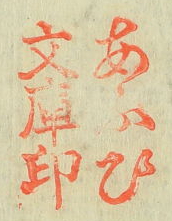 あハひ
文庫印